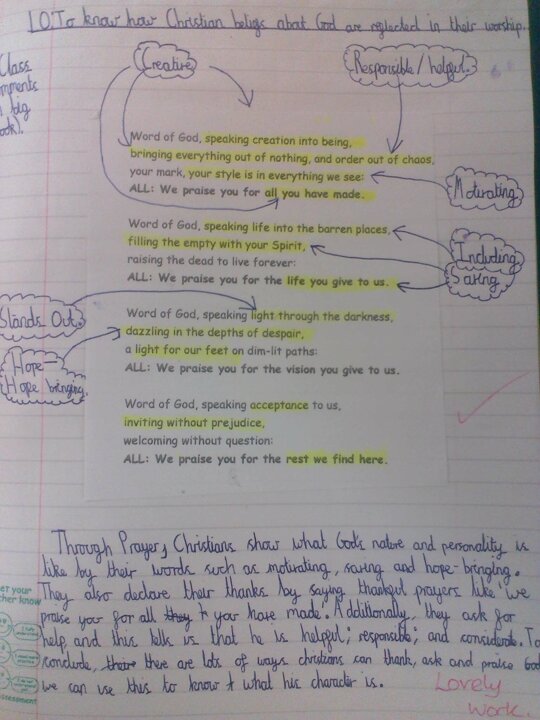 LO: To know how Christian beliefs about God are reflected in their worship.
Class
comments
big
book).
Creative
Responsible/helpful.
Word of God, speaking creation into being,
bringing everything out of nothing, and order out of chaos,
your mark, your style is in everything we see:
ALL: We praise you for all you have made.
Motivating
Word of God, speaking life into the barren places,
filling the empty with your Spirit,
raising the dead to live forever:
ALL: We praise you for the life you give to us.
Including
Saving
Stands Out.
Hope-
Hope bringing.
Word of God, speaking light through the darkness,
dazzling in the depths of despair,
a light for our feet on dim-lit paths:
ALL: We praise you for the vision you give to us.
Word of God, speaking acceptance to us,
inviting without prejudice,
welcoming without question:
ALL: We praise you for the rest we find here.
Through Prayer, Christians show what God's nature and personality is
like by their words such as motivating, saving and hope-bringing.
They also declare their thanks by saying thankful prayers like 'we
praise you for all they you have made'. Additionally, they ask for
help, and this tells us that he is helpful; responsible; and considerate. To
conclude, there there are lots of ways christians can thank, ask and praise God
we can use this to know what his character is.
Lovely
work.